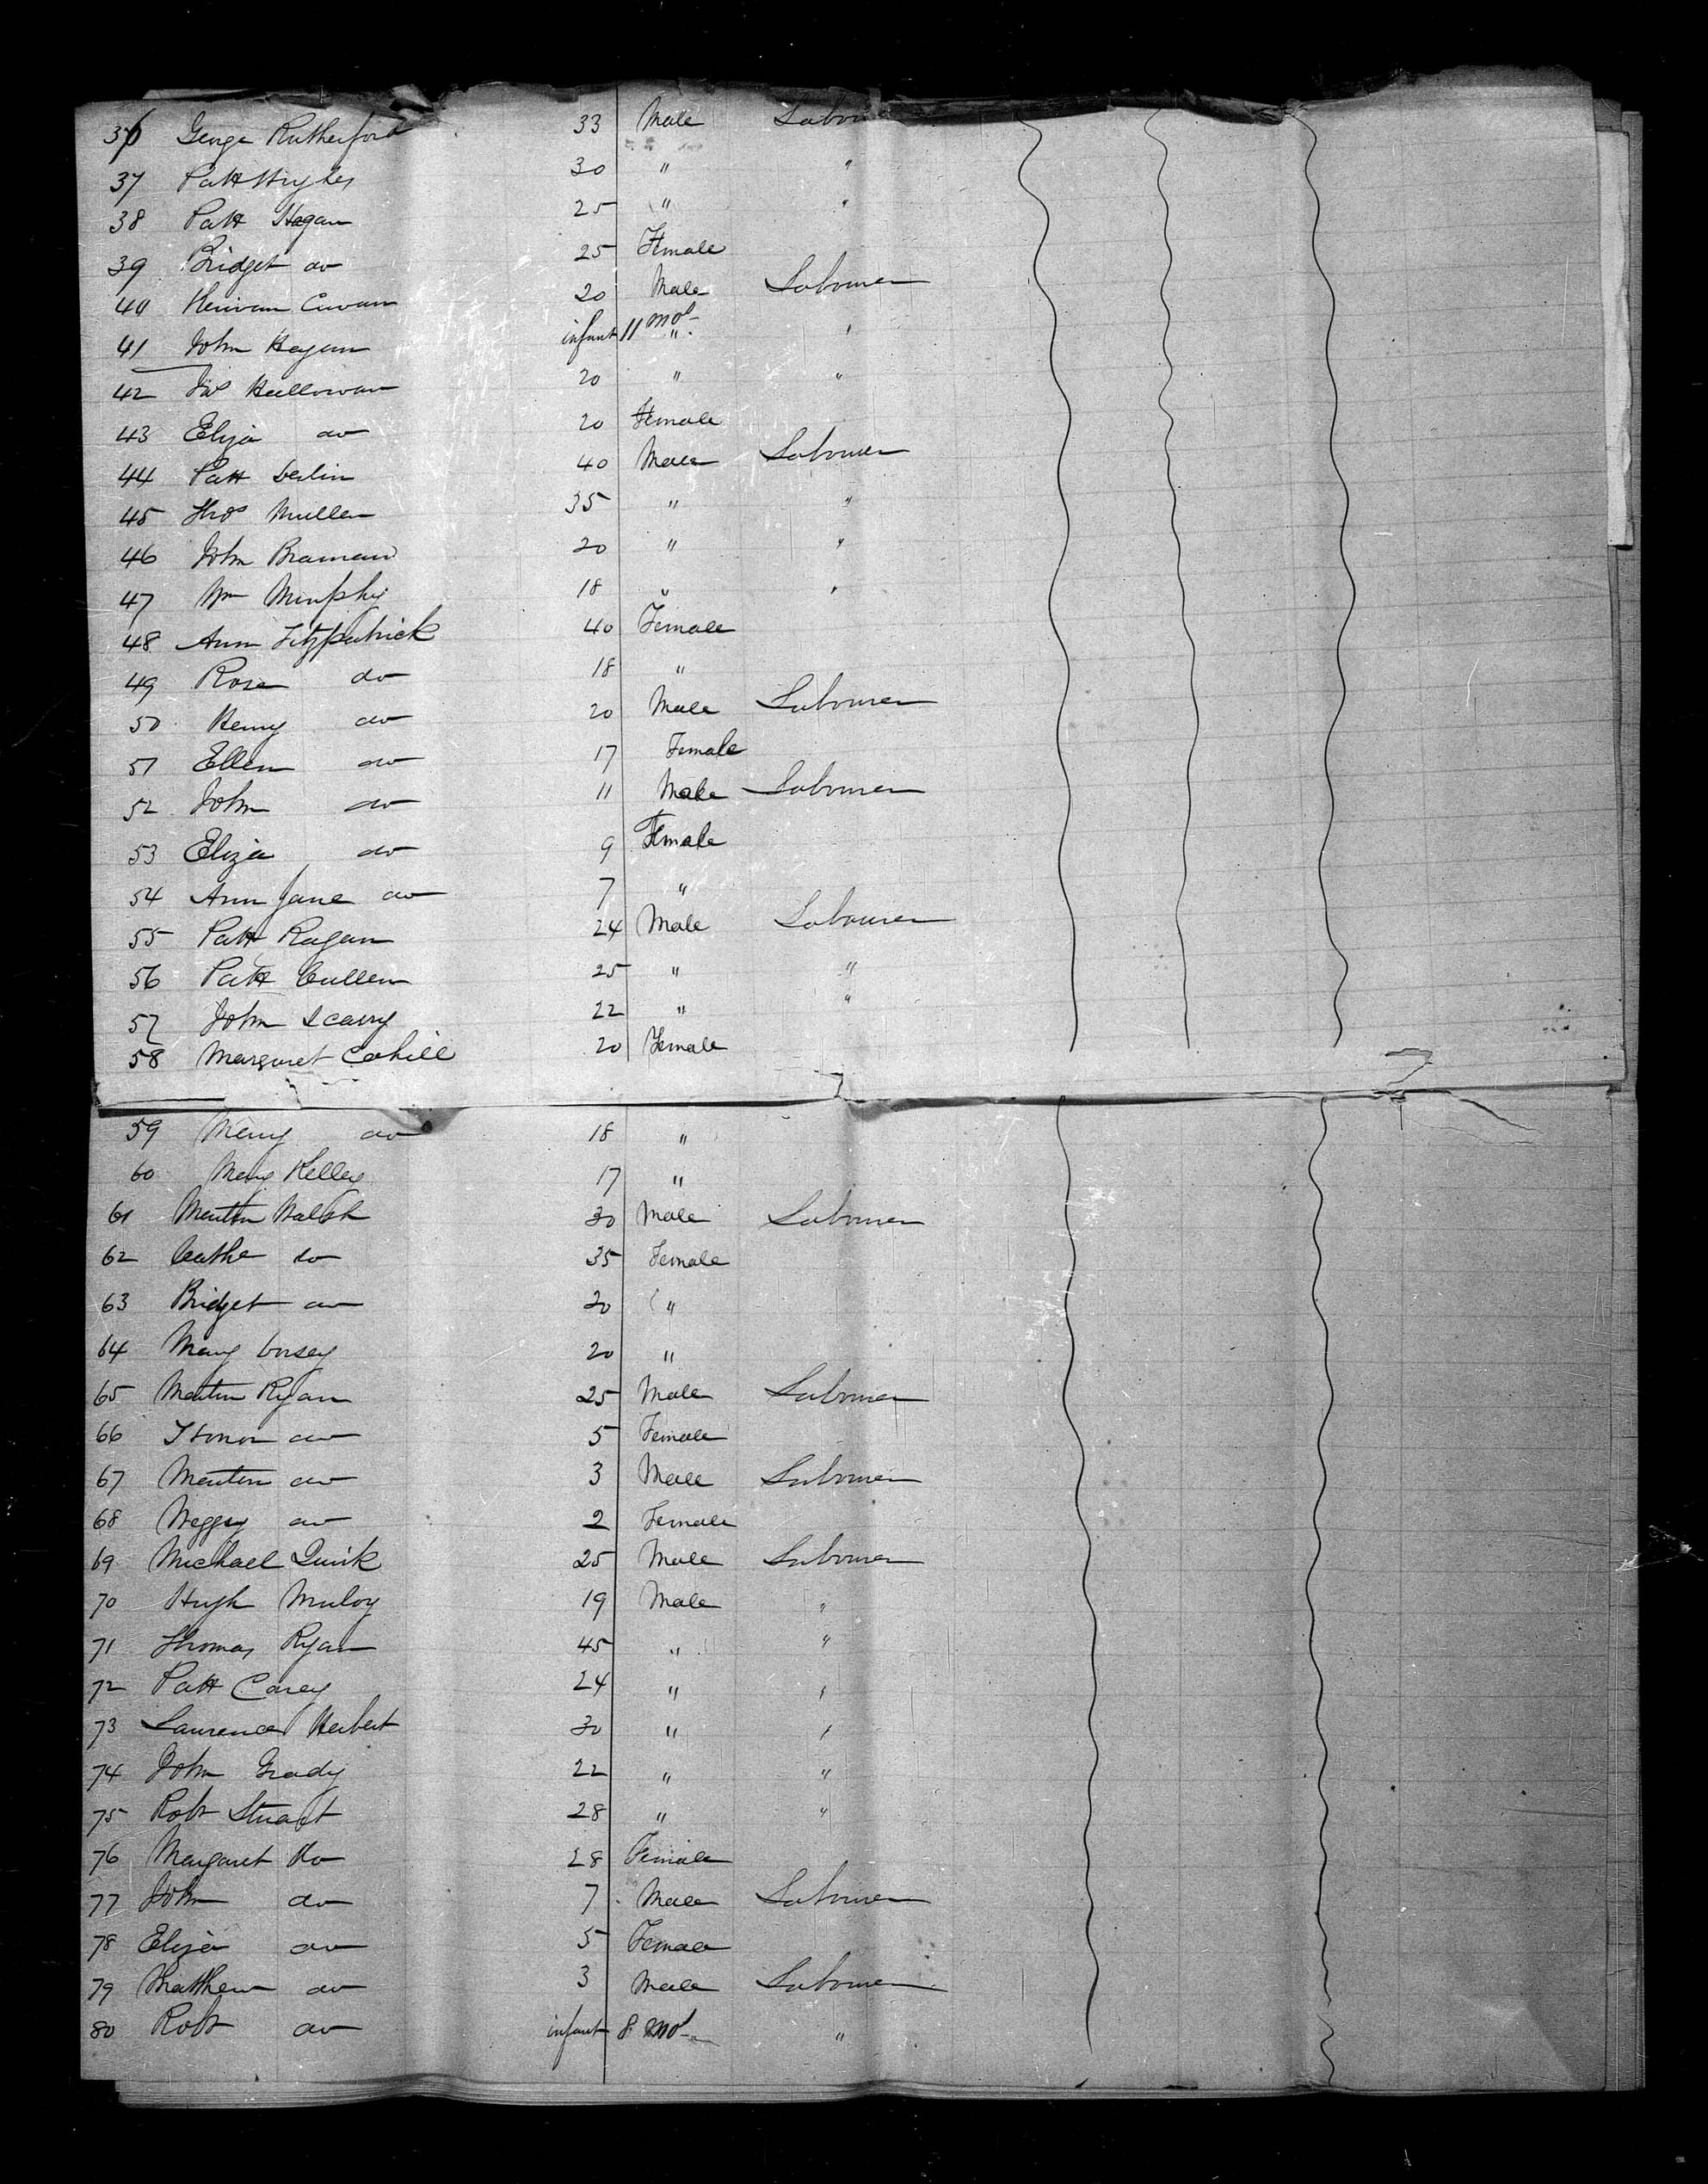 36 George Rutherford 33 Male Labou
37 Patt Hughes 30 " "
38 Patt Hagan 25 " "
39 Bridget do 25 Female
40 20 Male Labourer
41 John Hagan infant 11 mos " "
42 Jas Hallowan 20 " "
43 Eliza do 20 Female
44 Patt Devlin 40 Male Labourer
45 Thos Mullen 35 " "
46 John Brannan 20 " "
47 Wm Murphy 18 " "
48 Ann Fitzpatrick 40 Female
49 Rose do 18 "
50 Henry do 20 Male Labourer
51 Ellen do 17 Female
52 John do 11 Male Labourer
53 Eliza do 9 Female
54 Ann Jane do 7 "
55 Patt Ragan 24 Male Labourer
56 Patt Cullen 25 " "
57 John Scarry 22 " "
58 Margaret Cahill 20 Female
59 Mary do 18 "
60 Mary Kelley 17 "
61 Martin Walsh 30 Male Labourer
62 Cathe do 35 Female
63 Bridget do 20 "
64 Mary 20 "
65 Martin Ryan 25 Male Labourer
66 Honor do 5 Female
67 Martin do 3 Male Labourer
68 Meggy do 2 Female
69 Michael Quirk 25 Male Labourer
70 Hugh Muloy 19 Male "
71 Thomas Ryan 45 " "
72 Patt Carey 24 " "
73 Laurence Herbert 30 " "
74 John Grady 22 " "
75 Robt Stuart 28 " "
76 Margaret Do 28 Female
77 John do 7 Male Labourer
78 Eliza do 5 Female
79 Matthew do 3 Male Labourer
80 Robt do infant 8 mos " "